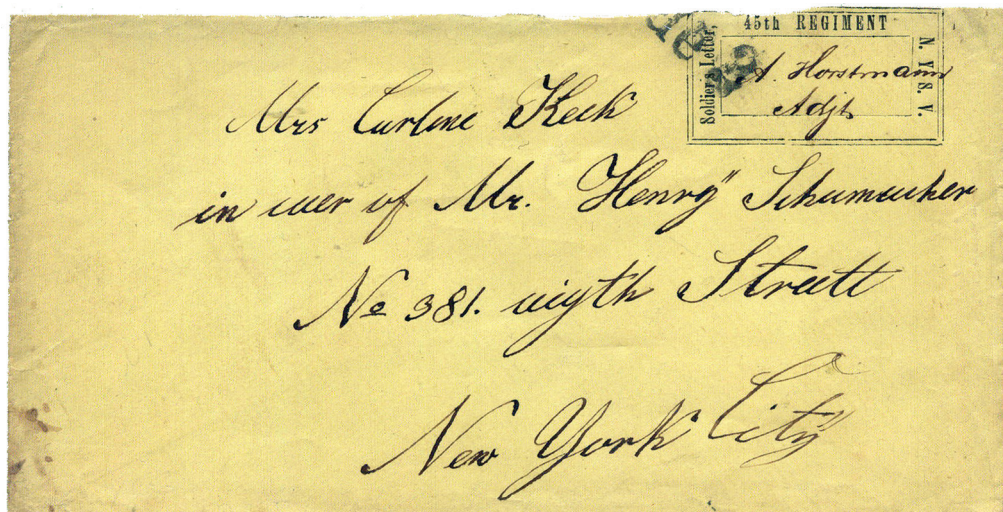 45th REGIMENT
Soldier's Letter,
N. Y. S. V.
A. Horstmann
Adjt
Mrs Carline Keck
in caer of Mr. "Henry" Schumacher
No 381. aigth Streett
New York City